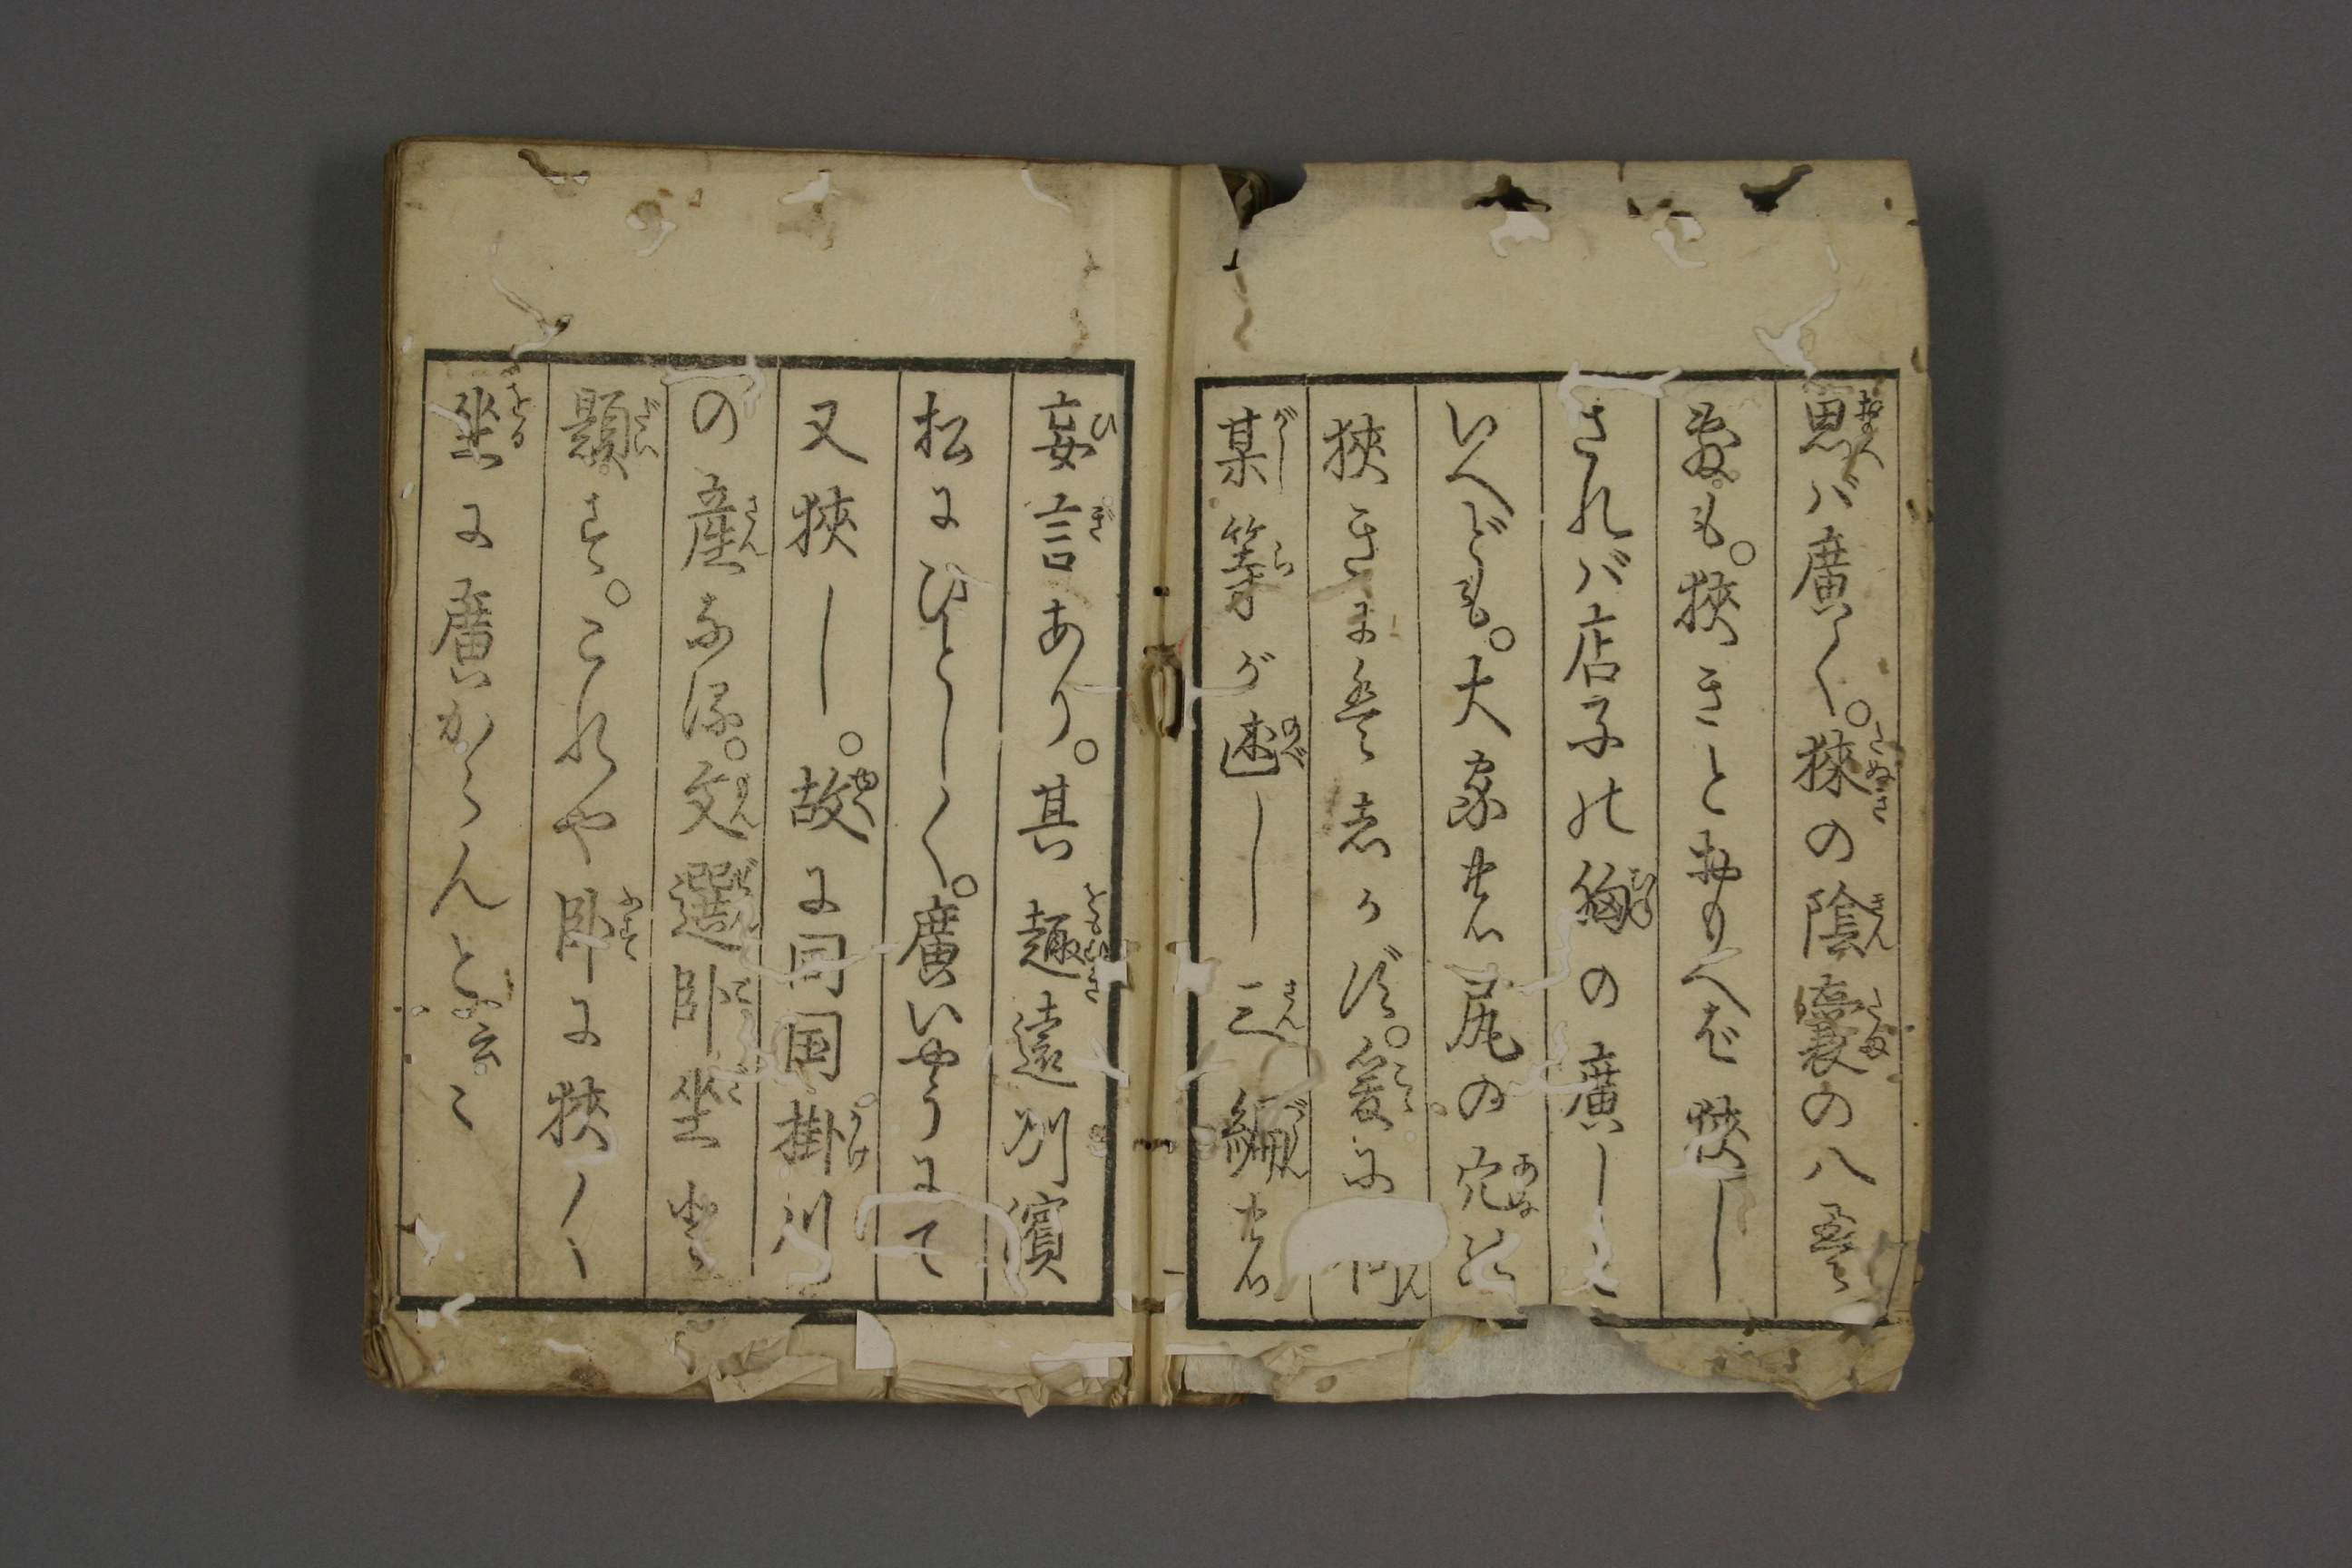 思バ廣く。狭の陰嚢の八畳
敷も。狭きとおもへば狭し
されバ店子の胸の廣しと
いへども。大家さんの尻の穴
狭きにハしかず。爰に
某等が述し三編
妄言あり。其趣遠州濱
松にひとしく。廣いやうにて
又狭し。故に同国掛川
の産なる。文選卧坐に
題す。これや卧に狭く
坐に廣からんと云